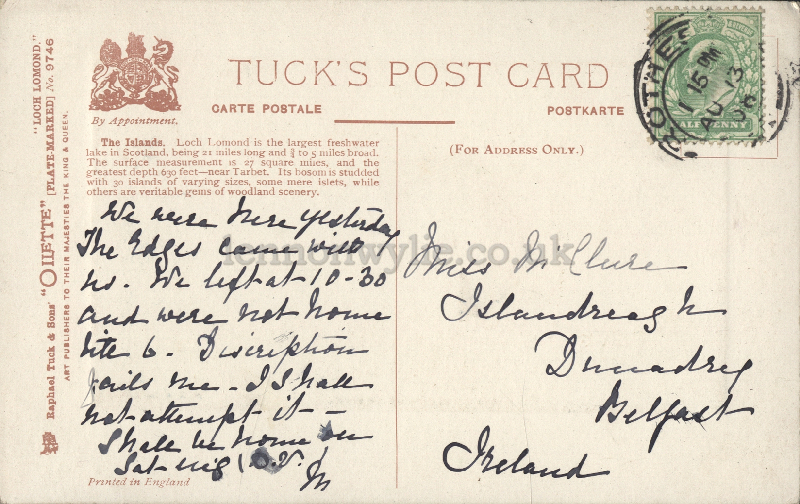 "LOCH LOMOND."
Raphael Tuck & Sons' "OILETTE" [PLATE-MARKED] No. 9746
ART PUBLISHERS TO THEIR MAJESTIES THE KING & QUEEN.
By Appointment.
TUCK'S POST CARD
CARTE POSTALE
POSTKARTE
The Islands. Loch Lomond is the largest freshwater
lake in Scotland, being 21 miles long and ¾ to 5 miles broad.
The surface measurement is 27 square miles, and the
greatest depth 630 feet—near Tarbet. Its bosom is studded
with 30 islands of varying sizes, some mere islets, while
others are veritable gems of woodland scenery.
(FOR ADDRESS ONLY.)
We were here yesterday
The Edges came with
us. We left at 10-30
and were not home
till 6. Discription
fails me - I shall
not attempt it -
Shall be home on
Sat. nig (D.V.)
M
Printed in England
Miss McClure
Islandreagh
Dunadry
Belfast
Ireland
ROTHE
1 15 PM
AU 13
HALFPENNY
lennonwylie.co.uk